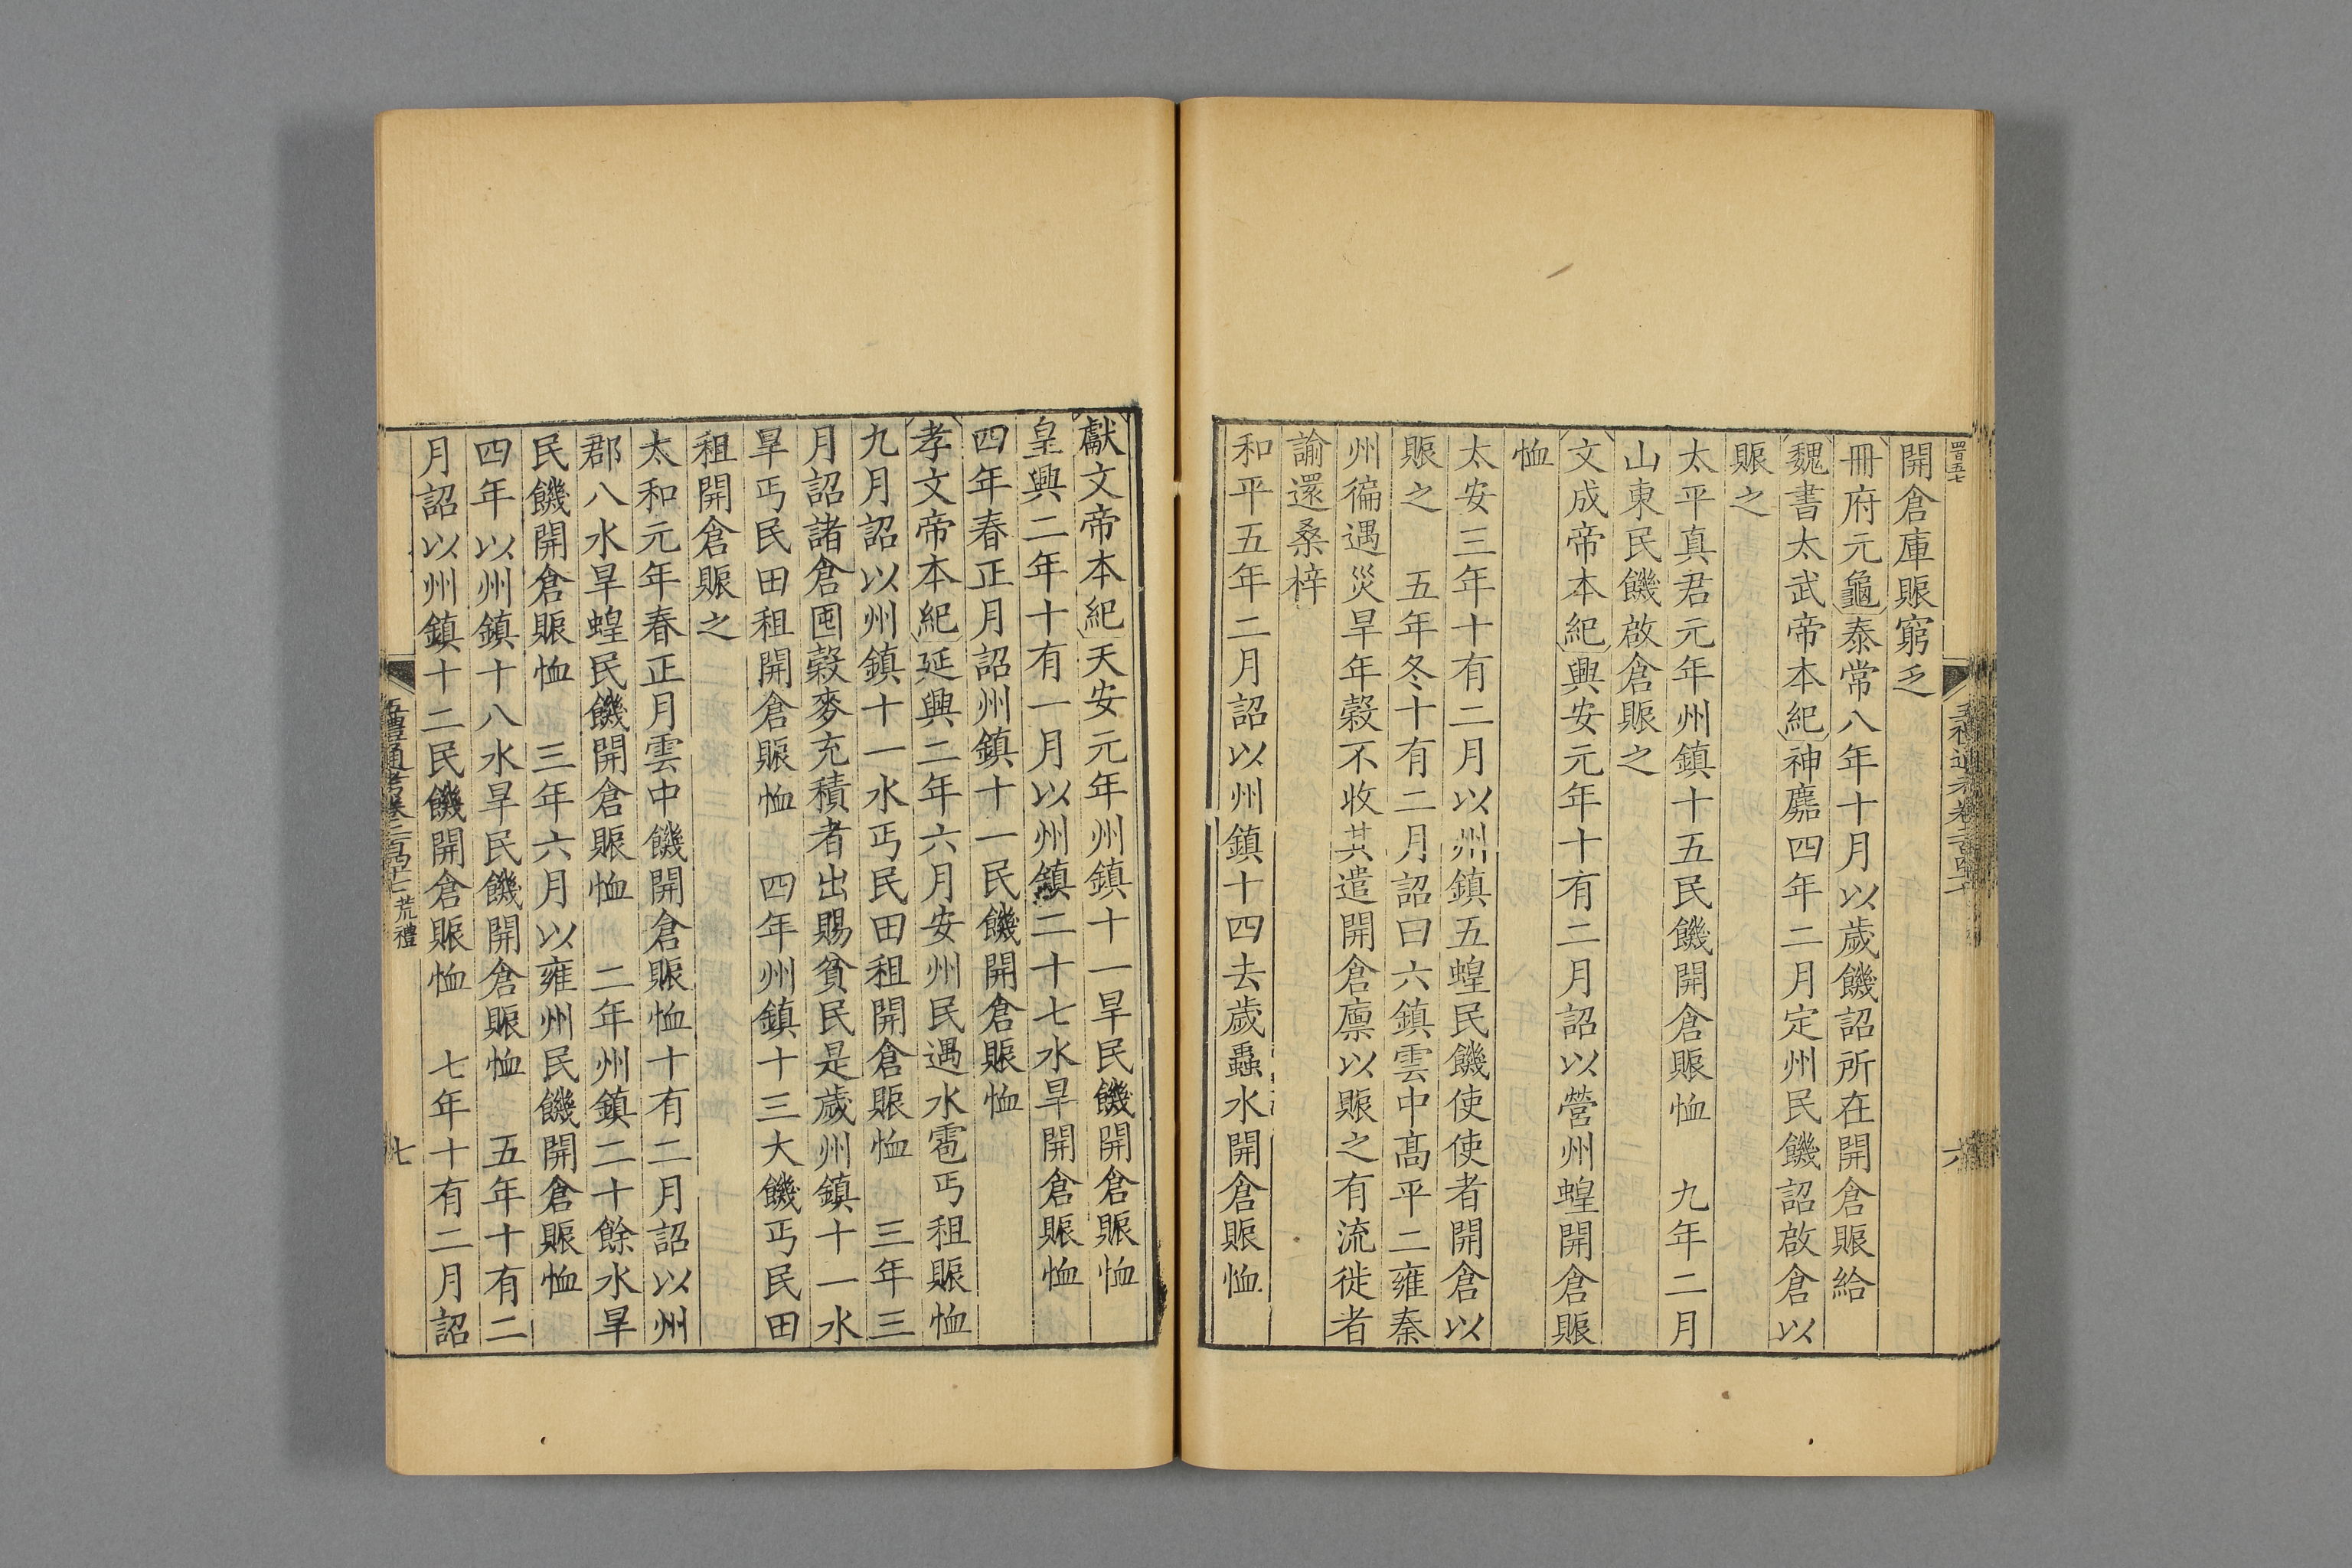 開倉庫賑窮乏
冊府元龜泰常八年十月以歲饑詔所在開倉賑給
魏書太武帝本紀神䴥四年二月定州民饑詔啟倉以
賑之
太平真君元年州鎮十五民饑開倉賑恤　九年二月
山東民饑啟倉賑之
文成帝本紀興安元年十有二月詔以營州蝗開倉賑
恤
太安三年十有二月以州鎮五蝗民饑使使者開倉以
賑之　五年冬十有二月詔曰六鎮雲中高平二雍秦
州徧遇災旱年穀不收其遣開倉廩以賑之有流徙者
諭還桑梓
和平五年二月詔以州鎮十四去歲蟲水開倉賑恤
獻文帝本紀天安元年州鎮十一旱民饑開倉賑恤
皇興二年十有一月以州鎮二十七水旱開倉賑恤
四年春正月詔州鎮十一民饑開倉賑恤
孝文帝本紀延興二年六月安州民遇水雹丐租賑恤
九月詔以州鎮十一水丐民田租開倉賑恤　三年三
月詔諸倉囤穀麥充積者出賜貧民是歲州鎮十一水
旱丐民田租開倉賑恤　四年州鎮十三大饑丐民田
租開倉賑之
太和元年春正月雲中饑開倉賑恤十有二月詔以州
郡八水旱蝗民饑開倉賑恤　二年州鎮二十餘水旱
民饑開倉賑恤　三年六月以雍州民饑開倉賑恤
四年以州鎮十八水旱民饑開倉賑恤　五年十有二
月詔以州鎮十二民饑開倉賑恤　七年十有二月詔
五禮通考卷二百四十七 荒禮
七